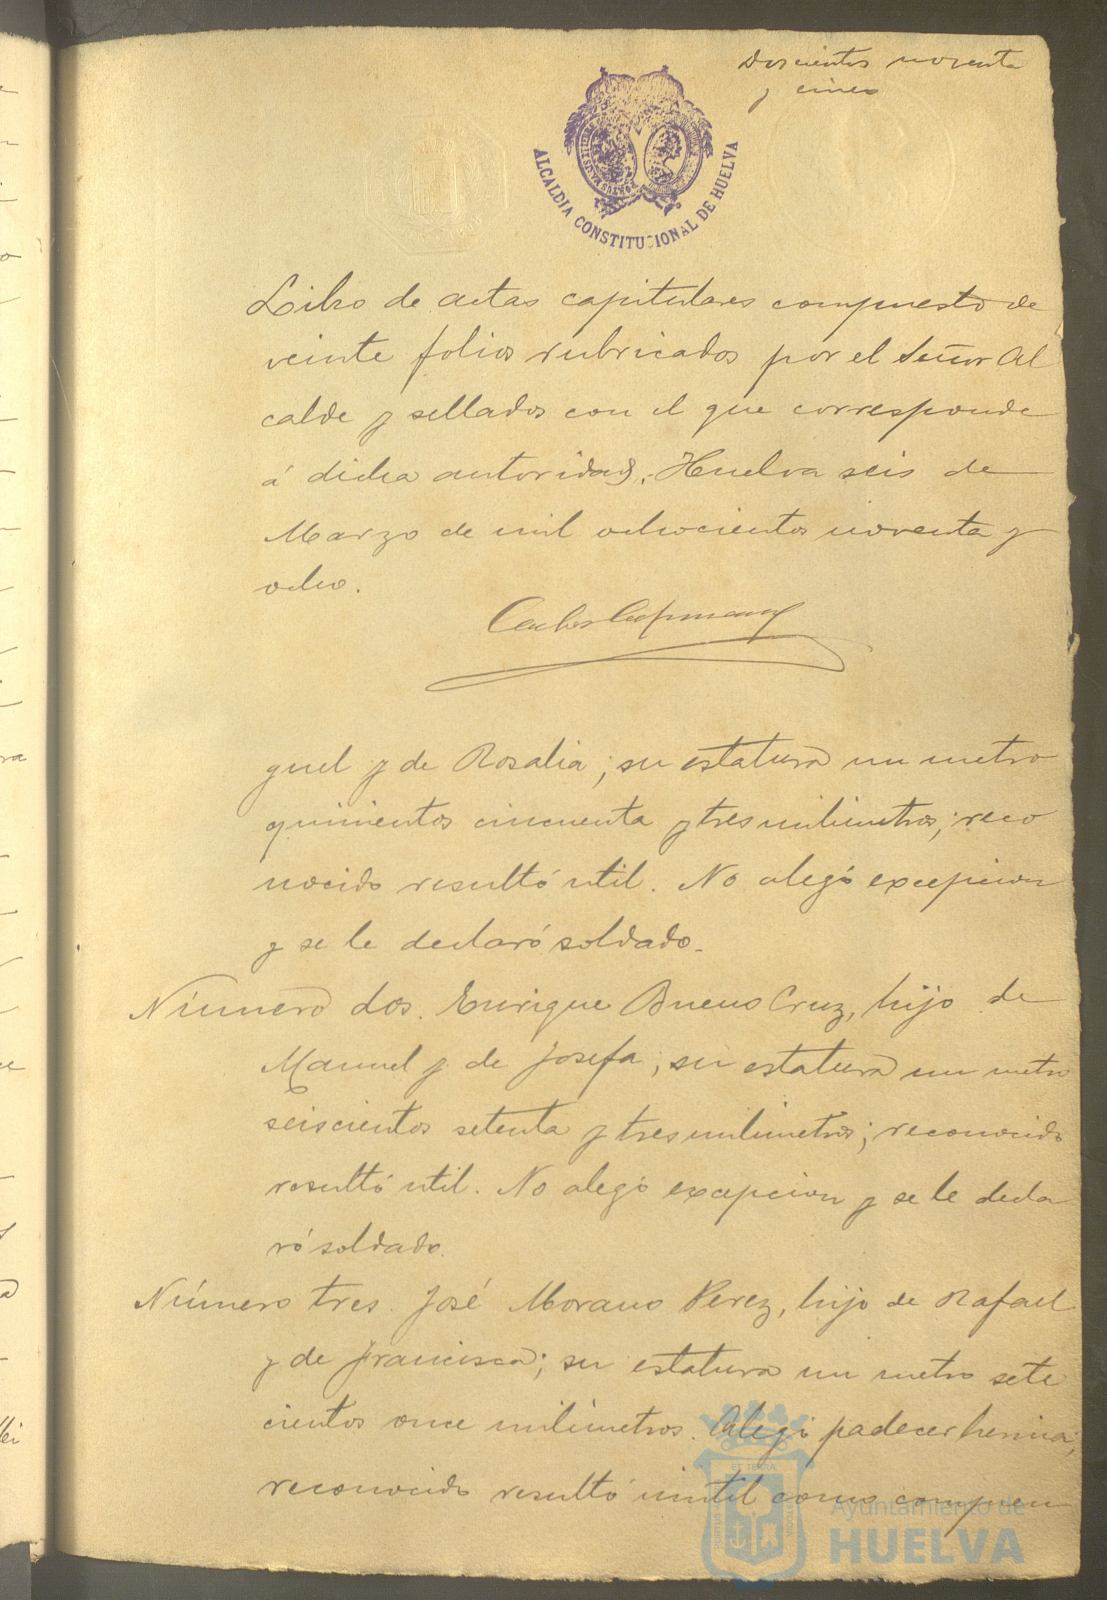 Doscientos noventa
y cinco
ALCALDIA CONSTITUCIONAL DE HUELVA
Libro de actas capitulares compuesto de
veinte folios rubricados por el Señor Al
calde y sellados con el que corresponde
á dicha autoridad. Huelva seis de
Marzo de mil ochocientos noventa y
ocho.
guel y de Rosalia; su estatura un metro
quinientos cincuenta y tres milimetros; reco
nocido resultó util. No alegó excepcion
y se le declaró soldado.
Número dos. Enrique Bueno Cruz, hijo de
Manuel y de Josefa; su estatura un metro
seiscientos setenta y tres milimetros; reconocido
resultó util. No alegó excepcion y se le decla
ró soldado.
Número tres. José Morano Perez, hijo de Rafael
y de Francisca; su estatura un metro sete
cientos once milimetros. Alegó padecer hernia;
reconocido resultó inútil como compren
Ayuntamiento de
HUELVA